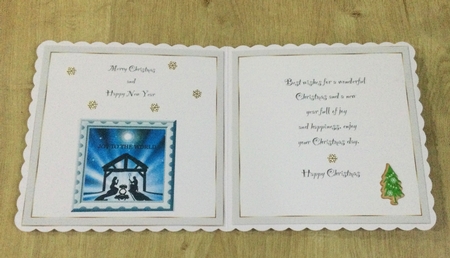 Merry Christmas
and
Happy New Year
JOY TO THE WORLD
Best wishes for a wonderful
Christmas and a new
year full of joy
and happiness, enjoy
your Christmas day.
Happy Christmas